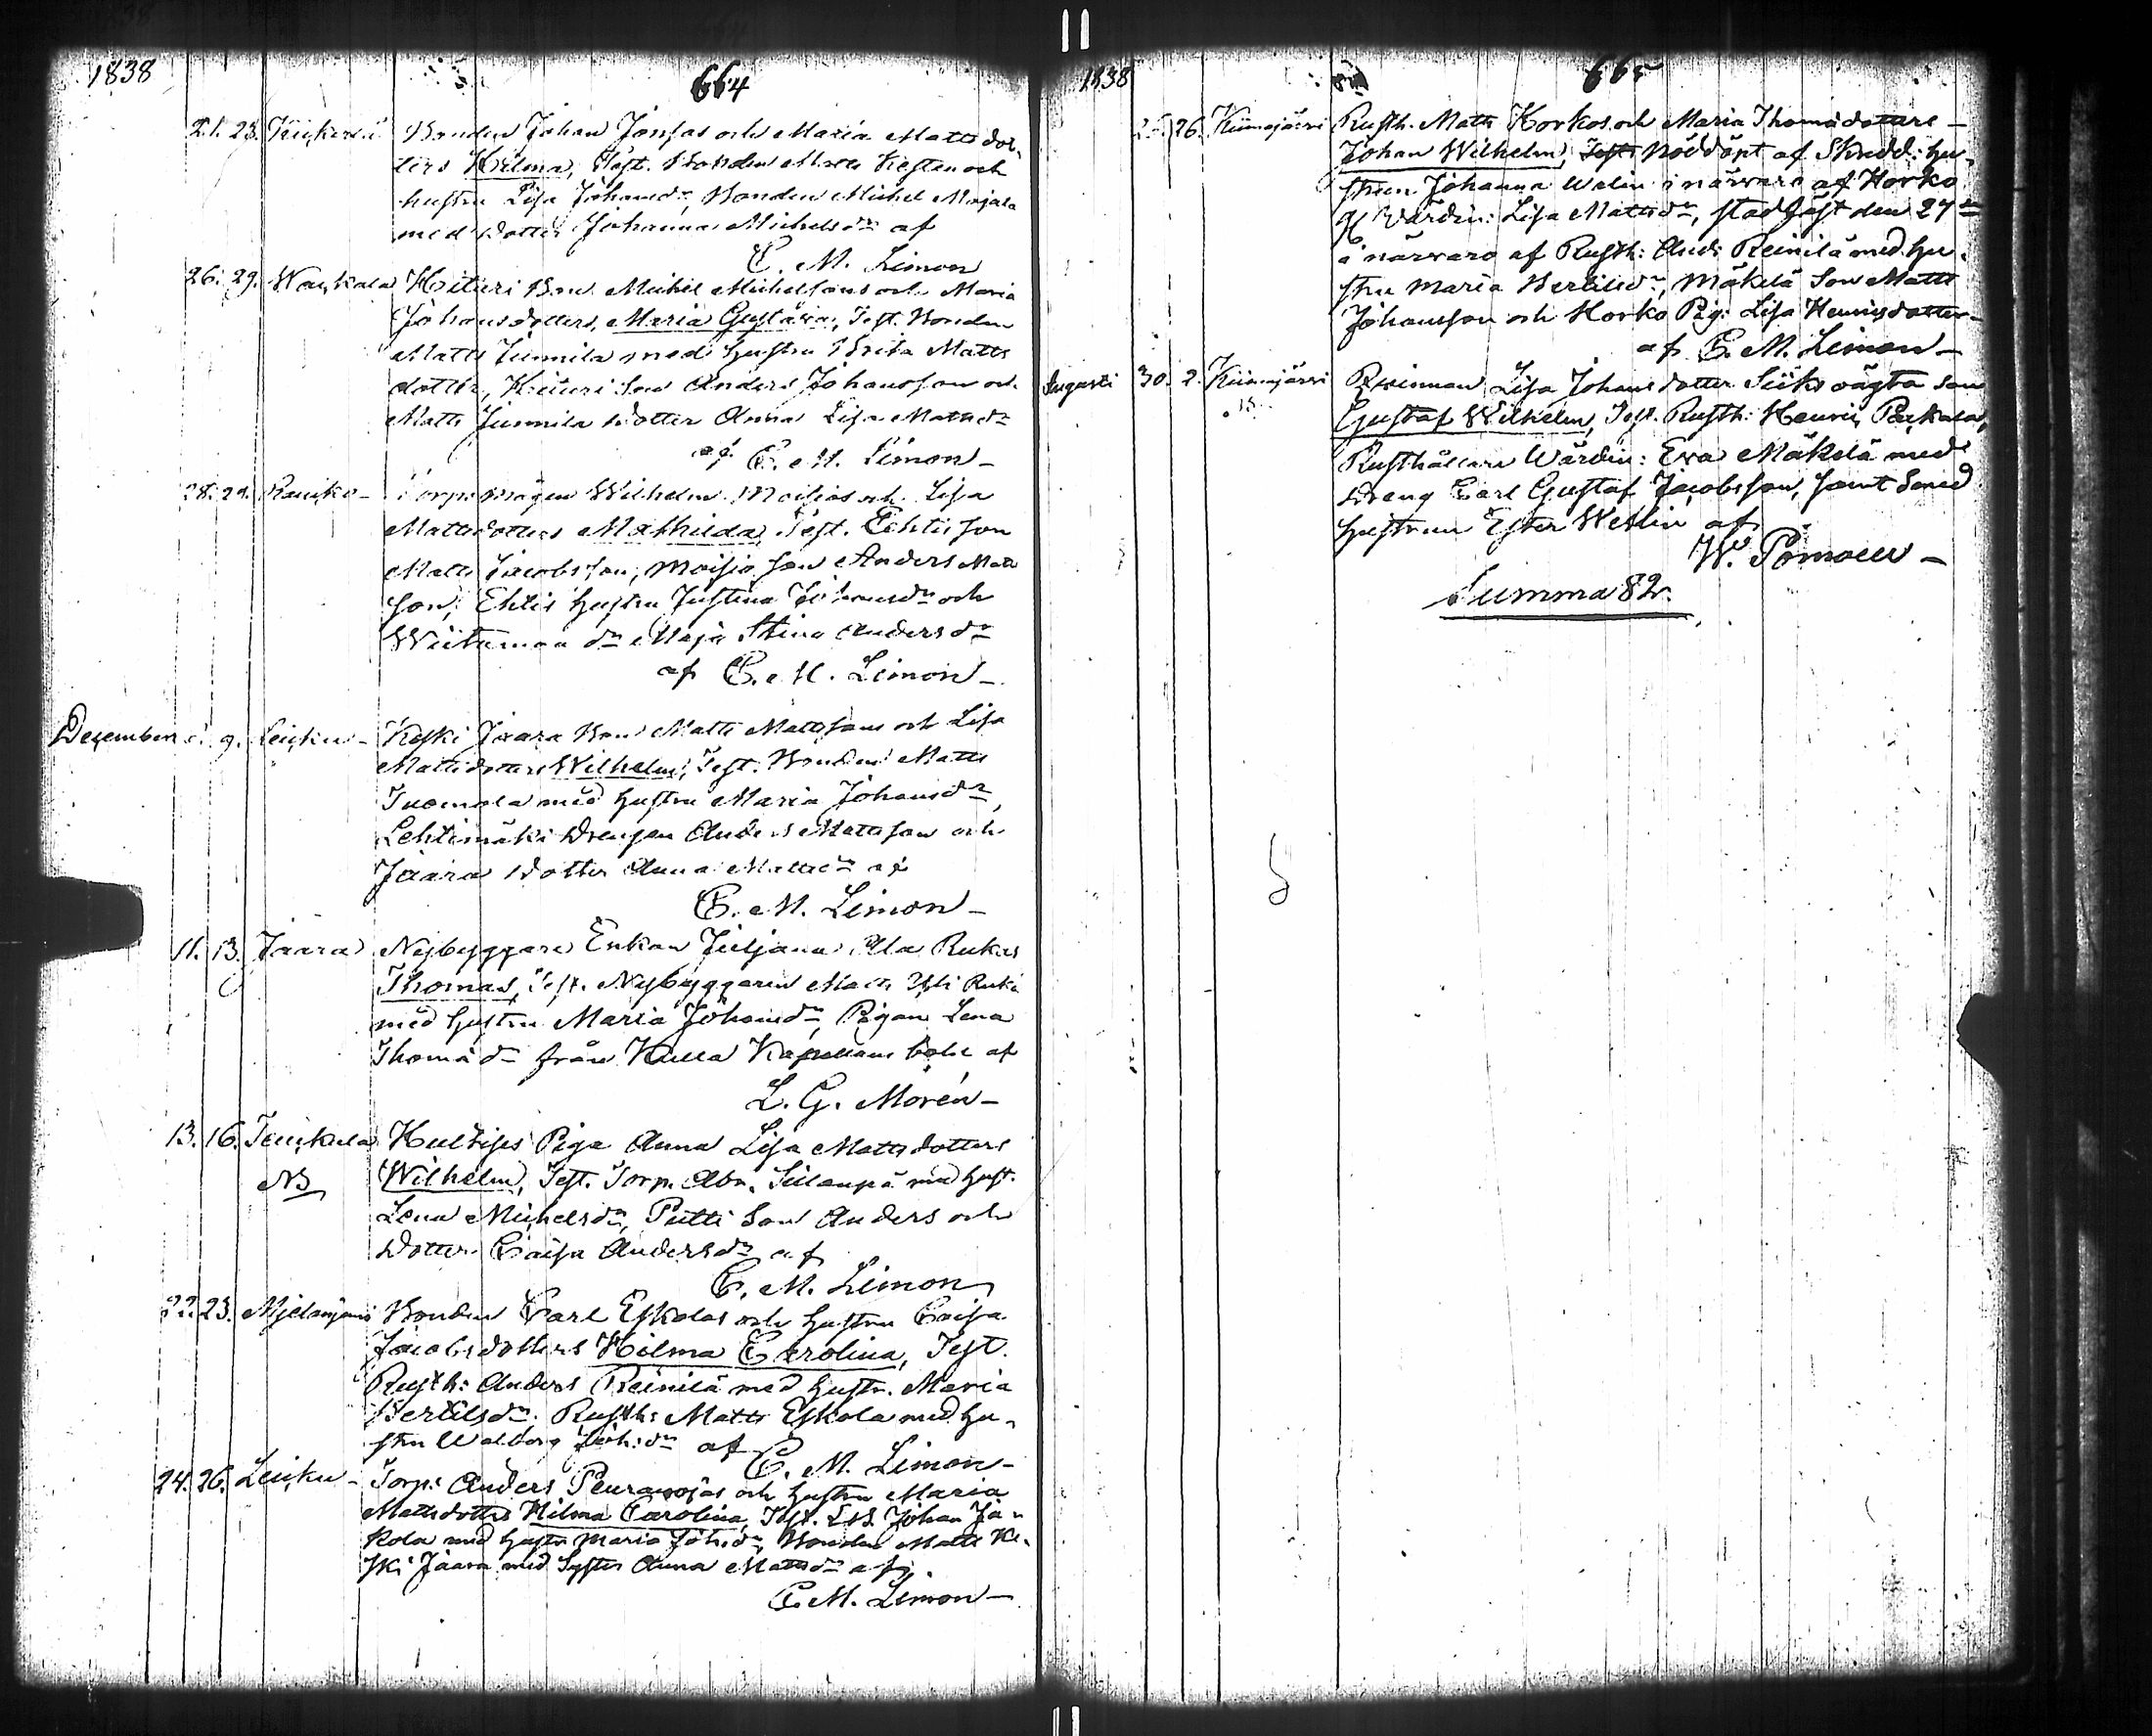 1838
664
21. 23. Bonden Johan Jonsas och Maria Matts dot-
ters Hilma, Test. Bonden Matts och
hustru Lisa Johansdr, Bonden Michel Maijala
med dotter Johanna Michelsdr af
C. M. Limon
26. 29. Hituri Bon. Michel Michelsons och Maria
Johansdotters, Maria Gustava, Test. Bonden
Matts Junnila med hustru Brita Matts
dotter, Hituri Son Anders Johansson och
Matts Junnila dotter Anna Lisa Mattsdr
af C. M. Limon –
28. 29. Raukko – Wilhelm Moisjos och Lisa
Mattsdotters Mathilda, Test. Ehtis son
Matts Jacobsson, Moisjo son Anders Matts
son, Ehtis hustru Justina Johansdr och
dr Maja Stina Andersdr
af C. M. Limon –
December 9. Keski Jaara Bon. Matts Mattssons och Lisa
Mattsdotters Wilhelm, Test. Bonden Matts
Tuomola med hustru Maria Johansdr,
Lehtimäki Drengen Anders Mattsson och
Jaara dotter Anna Mattsdr af
C. M. Limon –
11. 13. Jaara Nybyggare Enkan Juljana Ala Rukas
Thomas, Test. Nybyggaren Matts Yli Ruka
med hustru Maria Johansdr, Pigan Lena
Thomädr från Kulla Kapellans bole af
L. G. Morén –
13. 16. Hultises Piga Anna Lisa Mattsdotters
NB Wilhelm, Test. Torp. Abr. Sillanpä med hust.
Lena Michelsdr, Putti Son Anders och
dotter Caisa Andersdr af
C. M. Limon
22. 23. Bonden Carl Eskolas och hustru Caisa
Jacobsdotters Hilma Carolina, Test.
Rusth: Anders Reinilä med hustr. Maria
Bertilsdr. Rusth: Matts Eskola med hu-
stru Walborg Joh:dr af
C. M. Limon –
24. 26. Torp: Anders Peuranojas och hustru Maria
Mattsdotters Hilma Carolina, Test. Johan Ja-
kola med hustru Maria Joh:dr, Bonden Matts Ke-
ski Jaara med Syster Anna Mattsdr af
C. M. Limon –
1838
665
26. Kiimajärvi Rusth. Matts Horkos och Maria Thomädotters –
Johan Wilhelm, Test. nöddöpt af Skredd: hu-
strun Johanna Walin i närvaro af Horko
Wärdin: Lisa Mattsdr, stadfäst den 27de
i närvaro af Rusth: And: Reinilä med hu-
stru Maria Bertilsdr, Mäkelä Son Matts
Johansson och Horko Pig: Lisa Henricsdotter –
af C. M. Limon –
Augusti 30. 2. Kiimajärvi Qvinnan Lisa Johansdotter Siiks oägta son
Gustaf Wilhelm, Test. Rusth: Henric Paukala,
Rusthållare Wärdin: Eva Mäkelä med
dreng Carl Gustaf Jacobsson, samt Smed
hustrun Ester Wetlin af
W. Pomoell –
Summa 82.